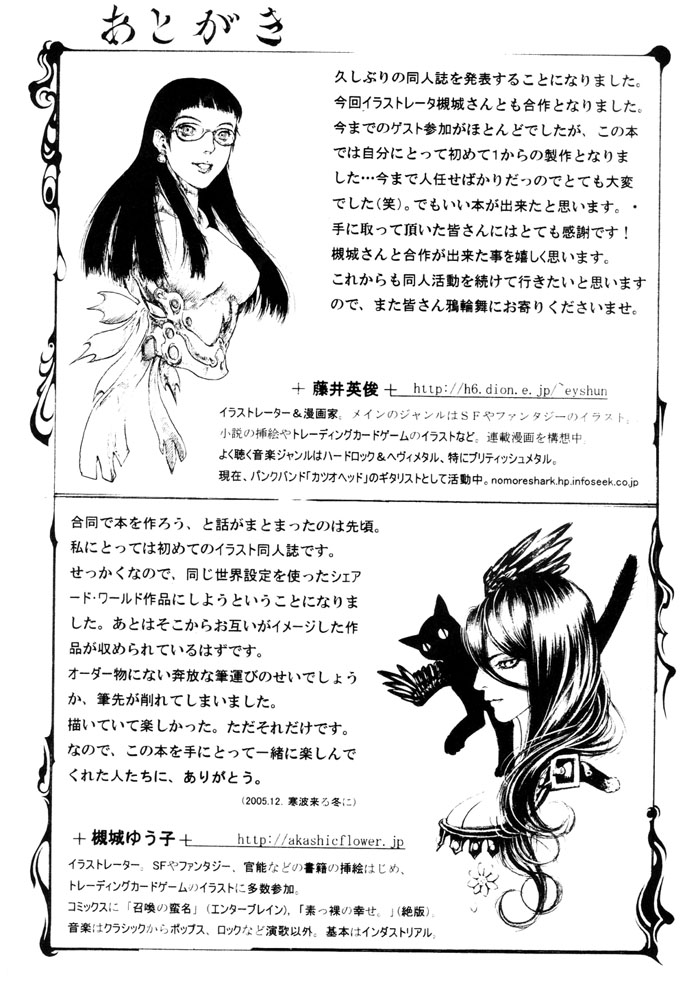 あとがき
久しぶりの同人誌を発表することになりました。
今回イラストレータ槻城さんとも合作となりました。
今までのゲスト参加がほとんどでしたが、この本
では自分にとって初めて1からの製作となりま
した…今まで人任せばかりだっのでとても大変
でした(笑)。でもいい本が出来たと思います。・
手に取って頂いた皆さんにはとても感謝です!
槻城さんと合作が出来た事を嬉しく思います。
これからも同人活動を続けて行きたいと思います
ので、また皆さん鴉輪舞にお寄りくださいませ。
+ 藤井英俊 + http://h6.dion.e.jp/~eyshun
イラストレーター&漫画家。メインのジャンルはSFやファンタジーのイラスト。
小説の挿絵やトレーディングカードゲームのイラストなど。連載漫画を構想中
よく聴く音楽ジャンルはハードロック&ヘヴィメタル、特にブリティッシュメタル。
現在、パンクバンド「カツオヘッド」のギタリストとして活動中。nomoreshark.hp.infoseek.co.jp
合同で本を作ろう、と話がまとまったのは先頃。
私にとっては初めてのイラスト同人誌です。
せっかくなので、同じ世界設定を使ったシェア
ード・ワールド作品にしようということになりま
した。あとはそこからお互いがイメージした作
品が収められているはずです。
オーダー物にない奔放な筆運びのせいでしょう
か、筆先が削れてしまいました。
描いていて楽しかった。ただそれだけです。
なので、この本を手にとって一緒に楽しんで
くれた人たちに、ありがとう。
(2005.12. 寒波来る冬に)
+ 槻城ゆう子 + http://akashicflower.jp
イラストレーター。SFやファンタジー、官能などの書籍の挿絵はじめ、
トレーディングカードゲームのイラストに多数参加。
コミックスに「召喚の蛮名」(エンターブレイン)，「素っ裸の幸せ。」(絶版)．
音楽はクラシックからポップス、ロックなど演歌以外。基本はインダストリアル。